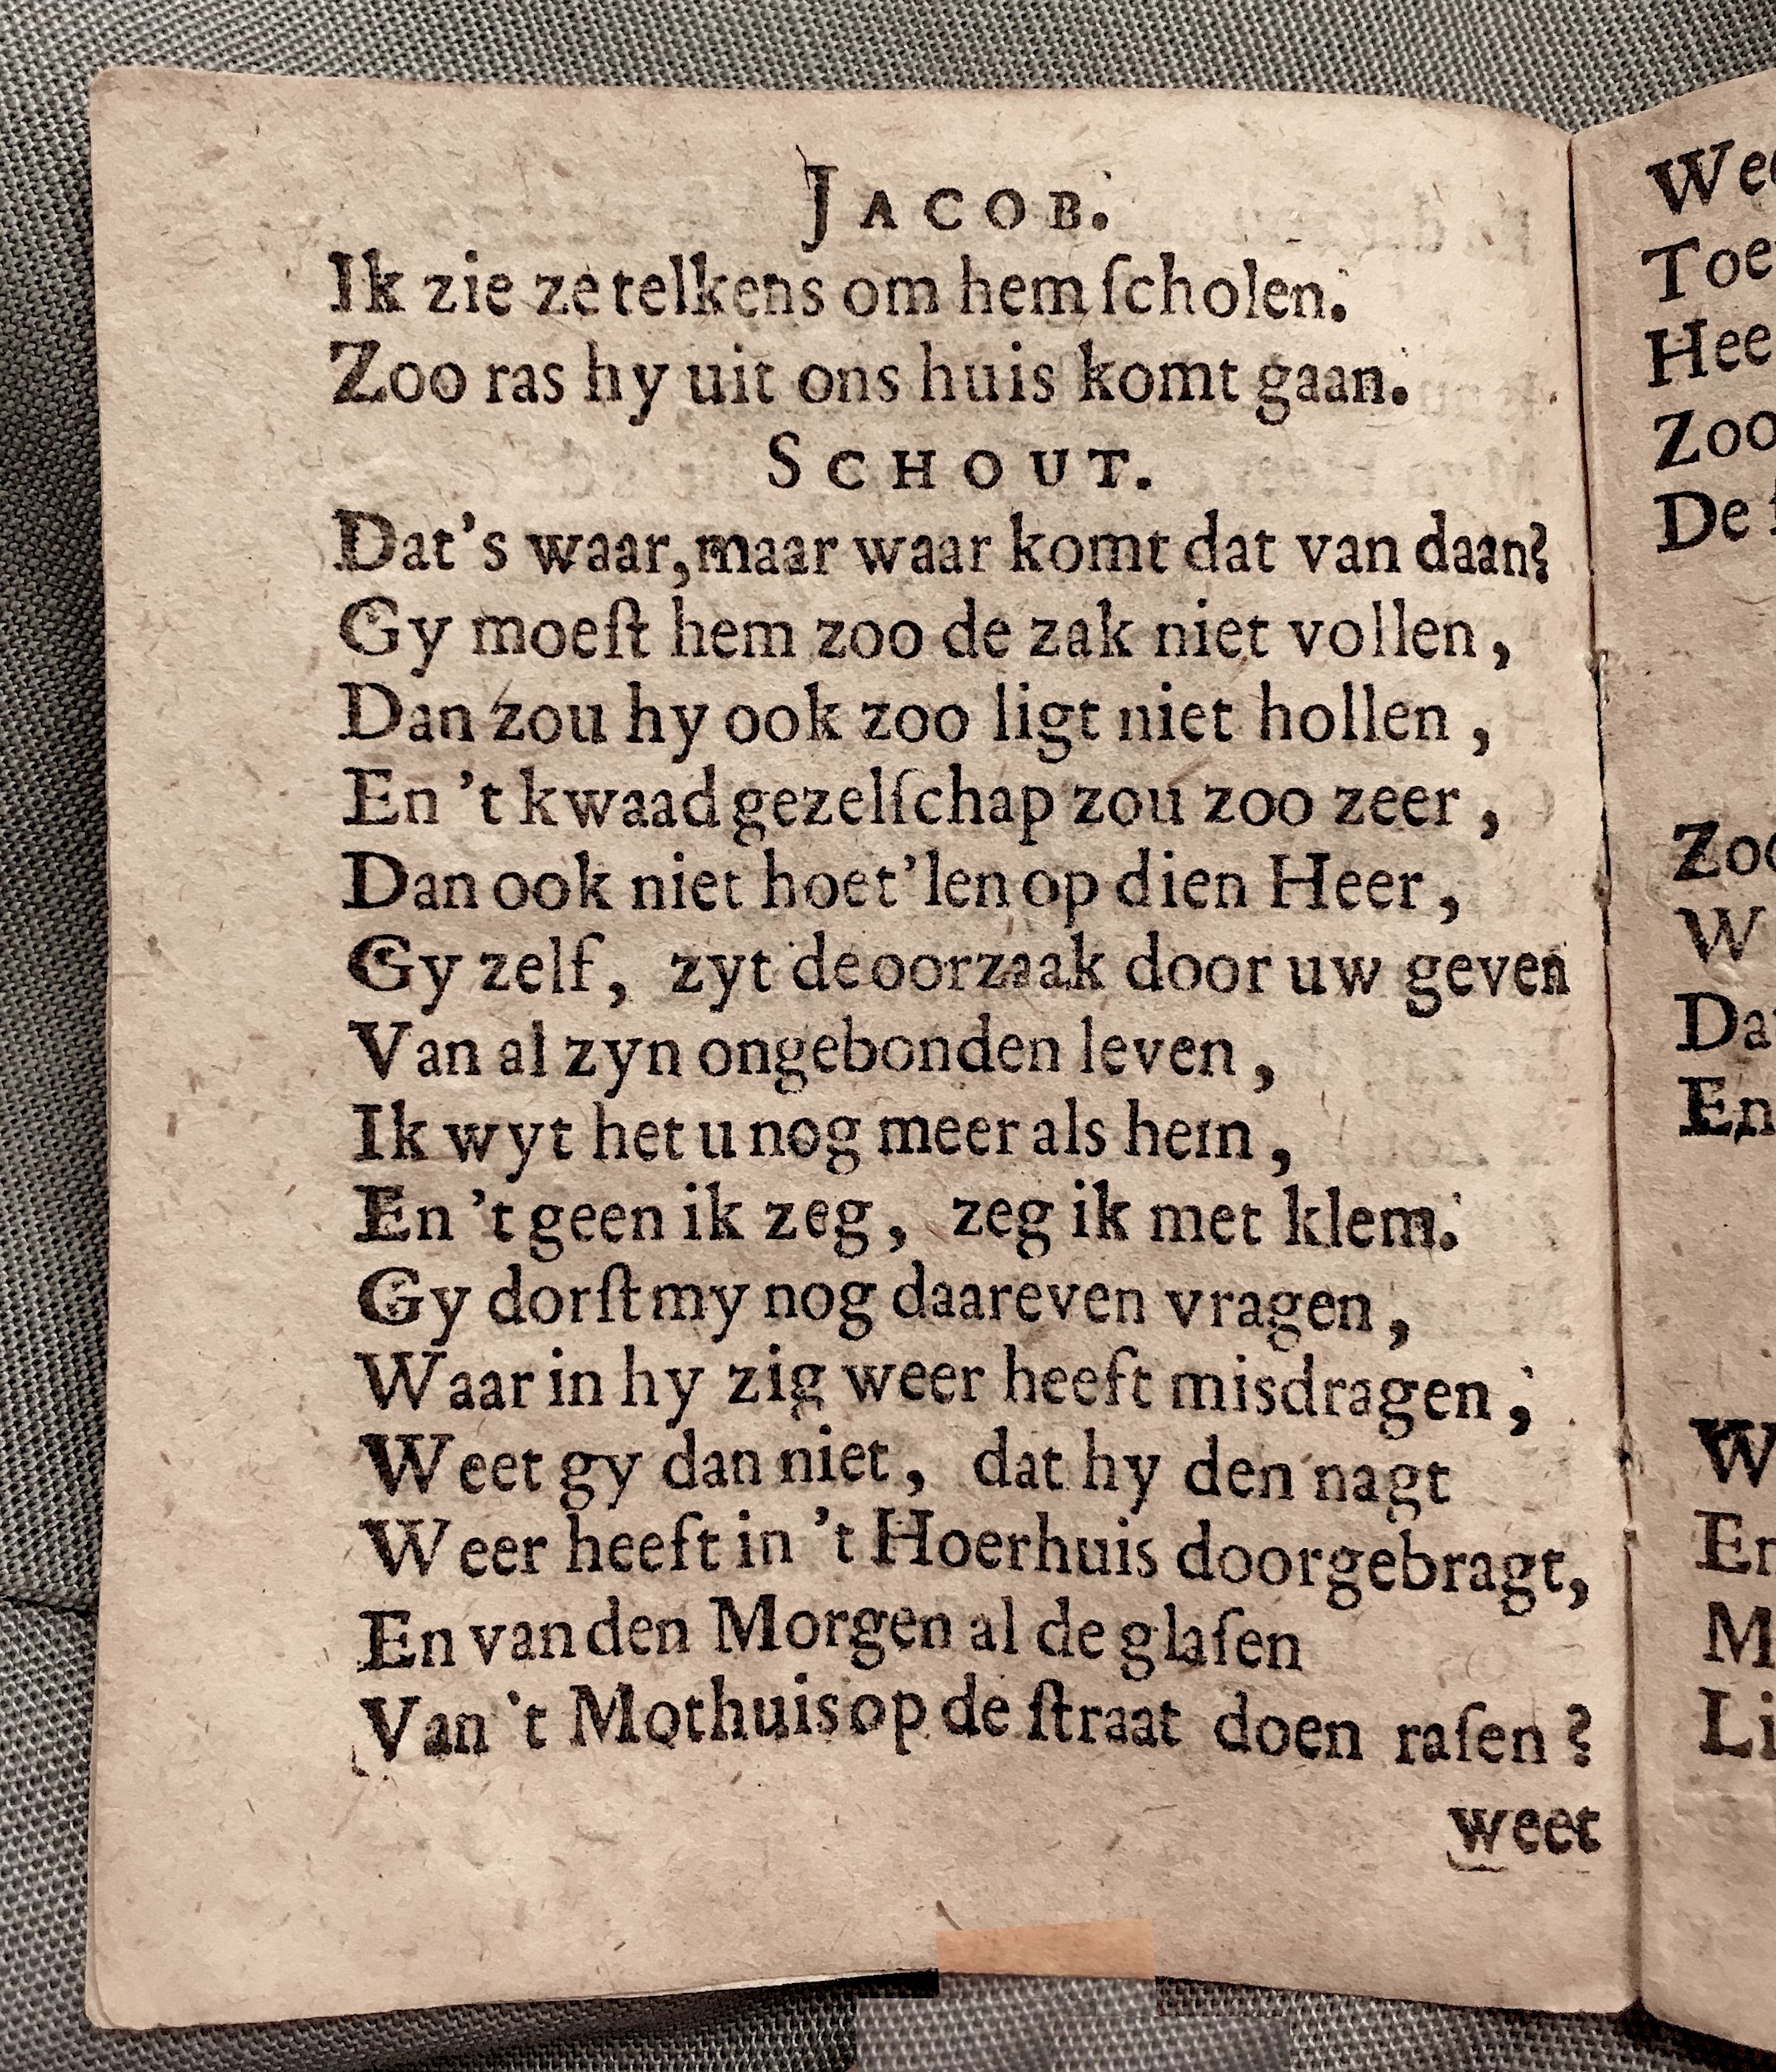 JACOB.
Ik zie ze telkens om hem ſcholen.
Zoo ras hy uit ons huis komt gaan.
SCHOUT.
Dat's waar, maar waar komt dat van daan?
Gy moeſt hem zoo de zak niet vollen,
Dan zou hy ook zoo ligt niet hollen,
En 't kwaad gezelſchap zou zoo zeer,
Dan ook niet hoet'len op dien Heer,
Gy zelf, zyt de oorzaak door uw geven
Van al zyn ongebonden leven,
Ik wyt het u nog meer als hem,
En 't geen ik zeg, zeg ik met klem.
Gy dorſt my nog daareven vragen,
Waar in hy zig weer heeft misdragen;
Weet gy dan niet, dat hy den nagt
Weer heeft in 't Hoerhuis doorgebragt,
En van den Morgen al de glaſen
Van 't Mothuis op de ſtraat doen raſen?
weet
Toe
Hee
Zoo
De
Zoo
W
Da
En
W
En
M
Li